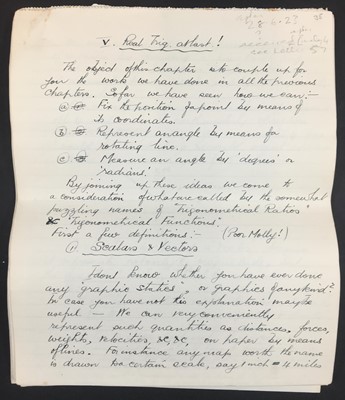 V. Real Trig. at last!
28.6.23
The object of this chapter is to couple up for
you the work we have done in all the previous
chapters. So far we have seen how we can:-
a Fix the position of a point by means of
its coordinates.
b Represent an angle by means of a
rotating line.
c Measure an angle by 'degrees' or
'radians'.
By joining up these ideas we come to
a consideration of what are called by the somewhat
puzzling names of "Trigonometrical Ratios
or "Trigonometrical Functions".
First a few definitions:- (Poor Molly!)
Scalars & Vectors
I don't know whether you have ever done
any "graphic statics", or graphics of any kind?
In case you have not this explanation may be
useful — We can very conveniently
represent such quantities as distances, forces,
weights, velocities, &c, &c, on paper by means
of lines. For instance any map worth the name
is drawn to a certain scale, say 1 inch = 4 miles